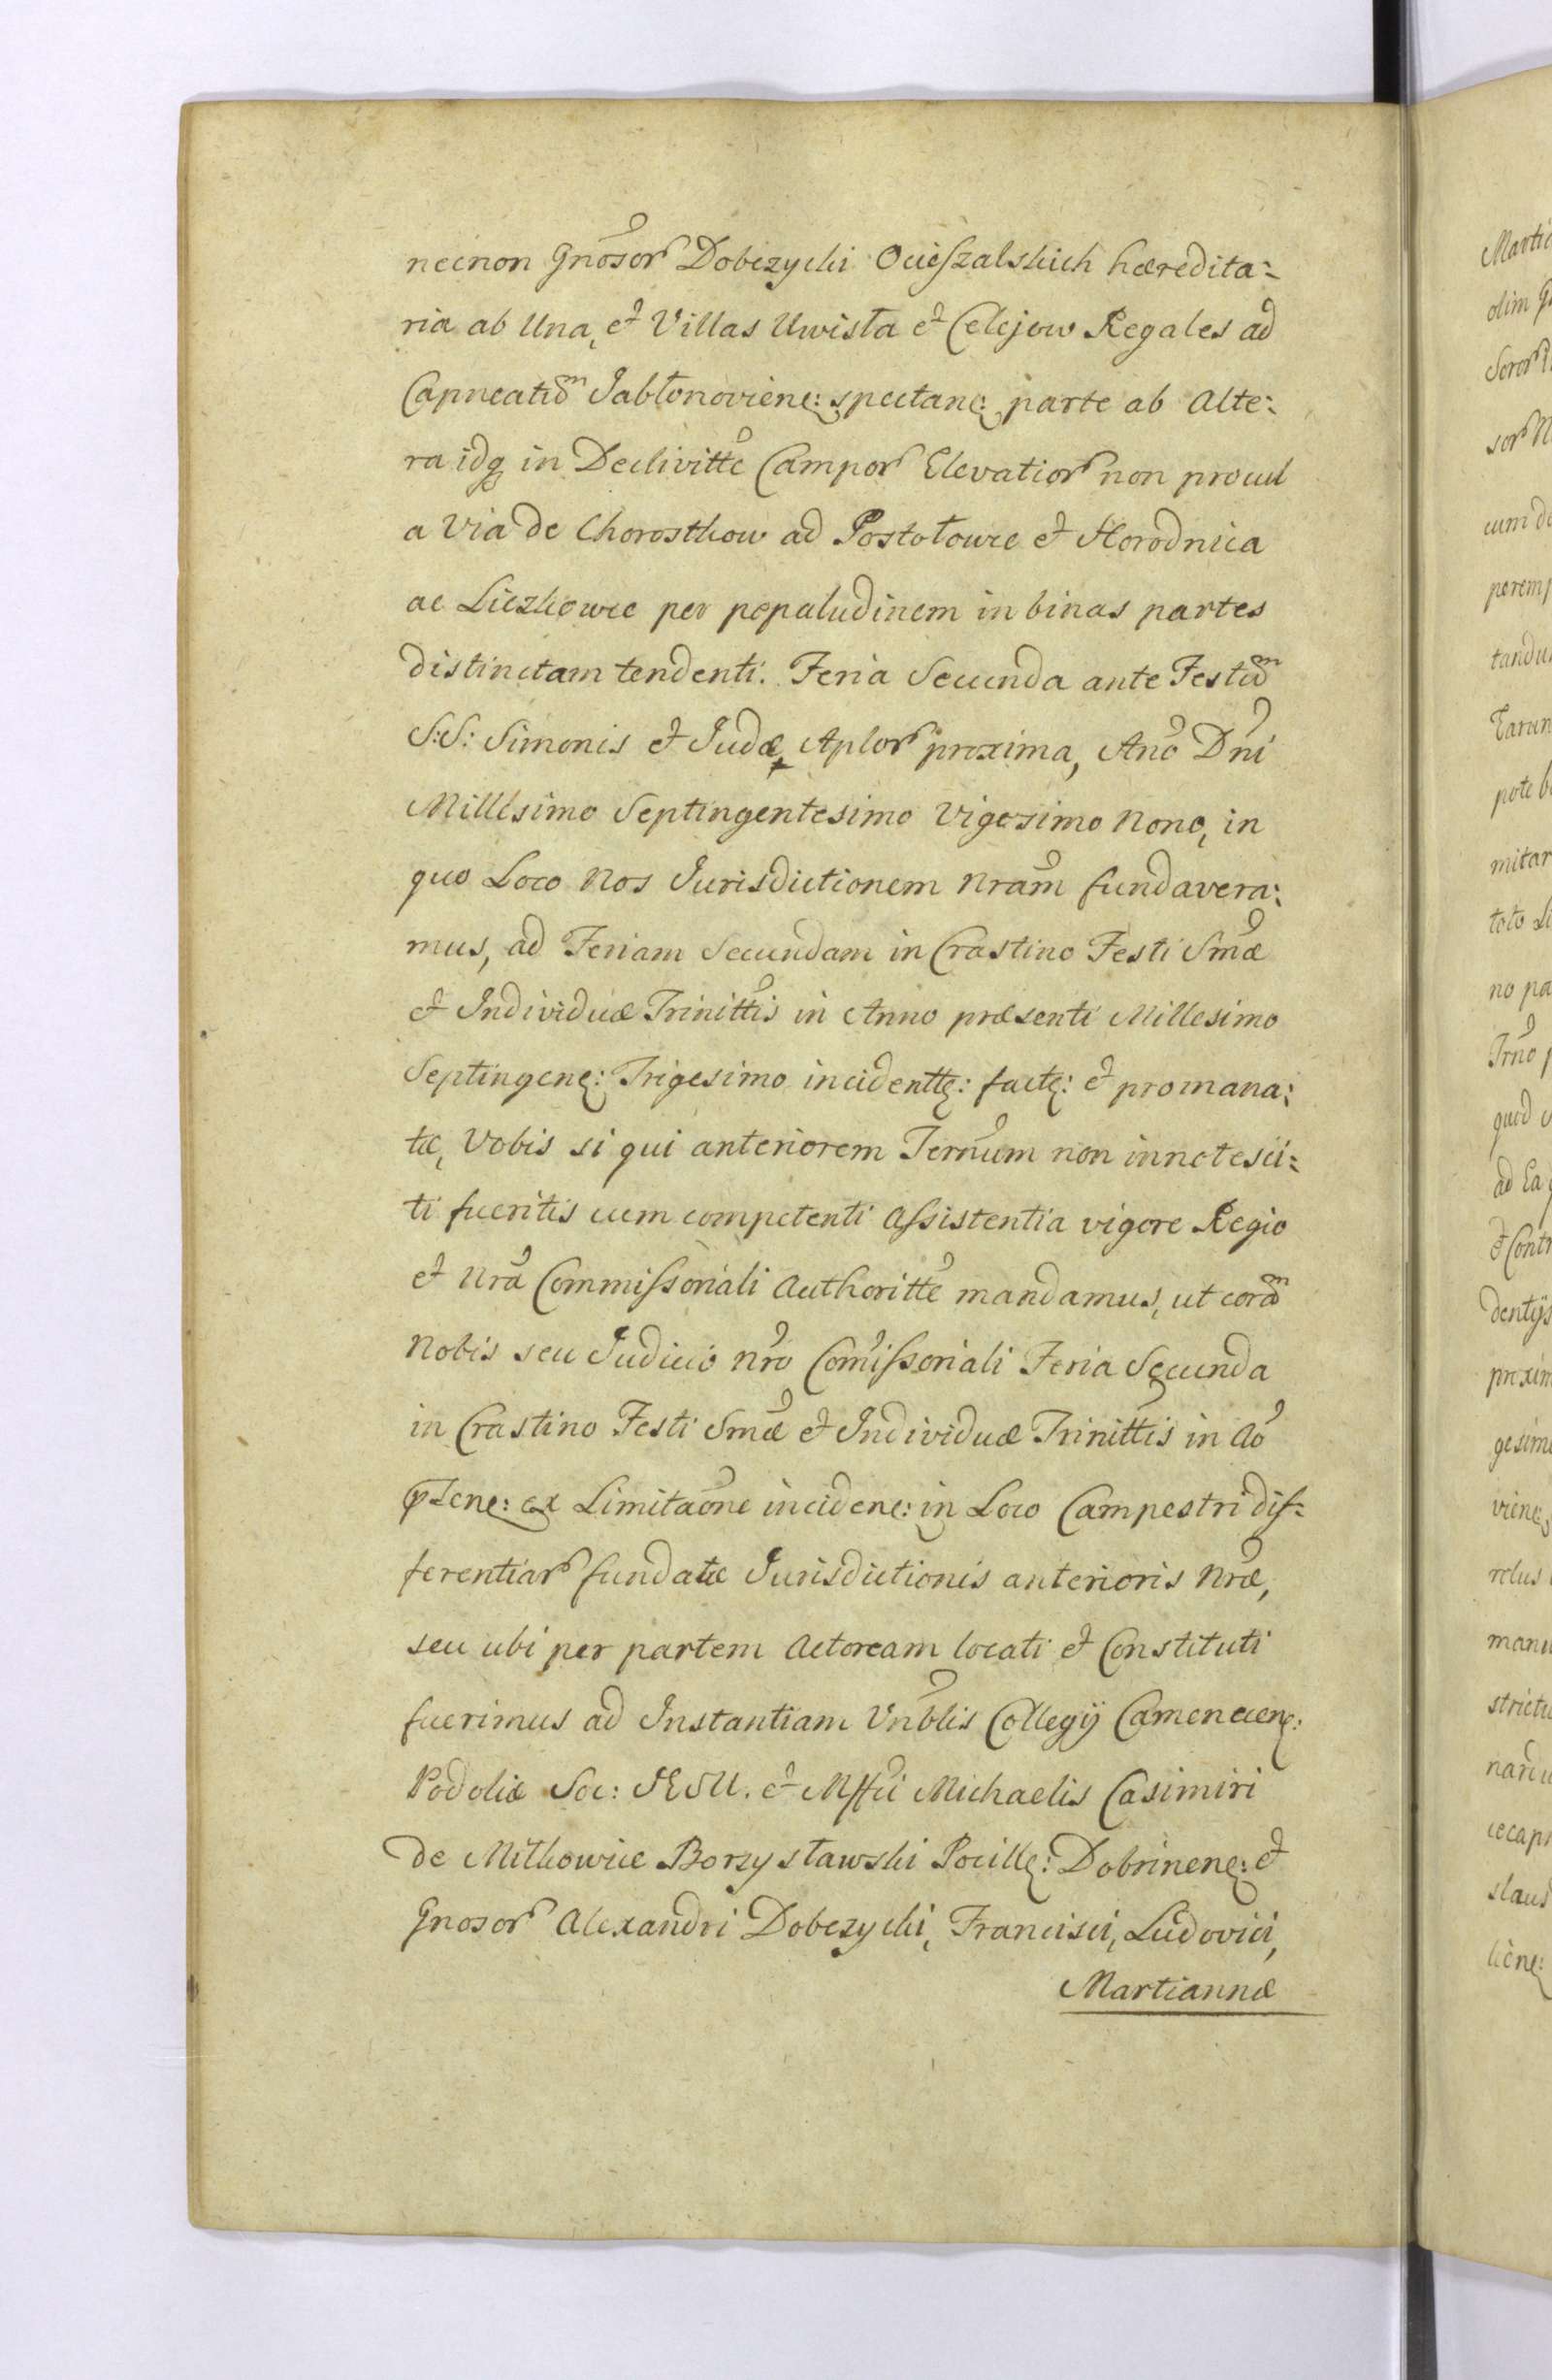 necnon Gnõsor Dobczycki Ocieszalskich hæredita:
ria ab Una, et Villas Uwisła et Celejow Regales ad
Capneatũm Jabłonoviene: spectane: parte ab Alte:
ra idq in Declivitte Campor Elevatior non procul
a Via de Chorostkow ad Postołowce et Horodnica
ac Liczkowce per popaludinem in binas partes
distinctam tendenti. Feria Secunda ante Festũm
S:S: Simonis et Judæ Aplor proxima, Año Dñi
Millesimo Septingentesimo Vigesimo Nono, in
quo Loco Nos Jurisdictionem Nram fundavera:
mus, ad Feriam Secundam in Crastino Festi Smæ
et Individuæ Trinittis in Anno præsenti Millesimo
Septingene: Trigesimo incidentte: facte: et promana:
tæ, Vobis si qui anteriorem Ternum non innotesci:
ti fueritis cum competenti Assistentia vigore Regio
et Nrã Commissoriali Authoritte mandamus, ut corãm
Nobis seu Judicio Nro Comissoriali Feria Secunda
in Crastino Festi Smæ et Individuæ Trinittis in Ao
ene: ex Limitaõne incidene: in Loco Campestri dif:
ferentiar fundatæ Jurisdictionis anterioris Nræ,
seu ubi per partem Actoream locati et Constituti
fuerimus ad Instantiam Vnblis Collegij Camenecene:
Podoliæ Soc: JESU. et Mffci Michaelis Casimiri
de Mitkowice Borzysławski Pocille: Dobrinene: et
Gnosor Alexandri Dobczycki, Francisci, Ludovici,
Martiannæ
Martia
olim
Soror
sor
cum
peremp
tandu
Tarun
pote
mitar
toto
no pa
Trno
quod
ad Ea
et Contr
dentijs
proxim
gesim
viene
relus
man
strictu
nar
cecapn
slaus
liene: